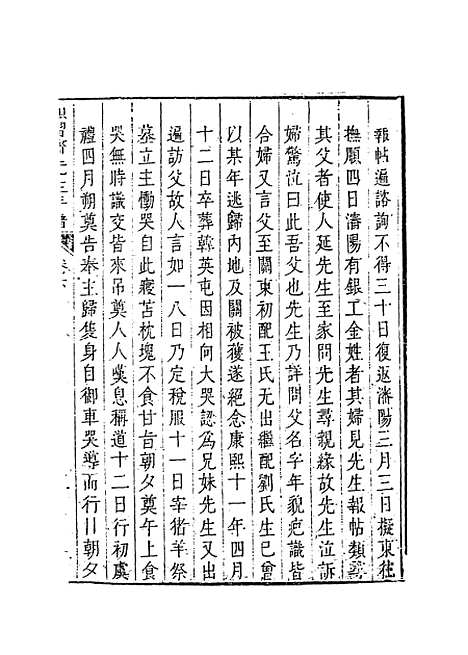 報帖遍諮詢不得三十日復返瀋陽三月三日擬東往
撫順四日瀋陽有銀工金姓者其婦見先生報帖類尋
其父者使人延先生至家問先生尋親緣故先生泣訴
婦驚泣曰此吾父也先生乃詳問父名字年貌疤識皆
合婦又言父至關東初配王氏無出繼配劉氏生己曾
以某年逃歸內地及關被獲遂絕念康熙十一年四月
十二日卒葬韓英屯因相向大哭認為兄妹先生又出
遍訪父故人言如一八日乃定稅服十一日宰猪羊祭
墓立主慟哭自此寢苫枕塊不食甘旨朝夕奠午上食
哭無時議交皆來吊奠人人嘆息稱道十二日行初虞
禮四月朔奠告奉主歸隻身自御車哭導而行日朝夕